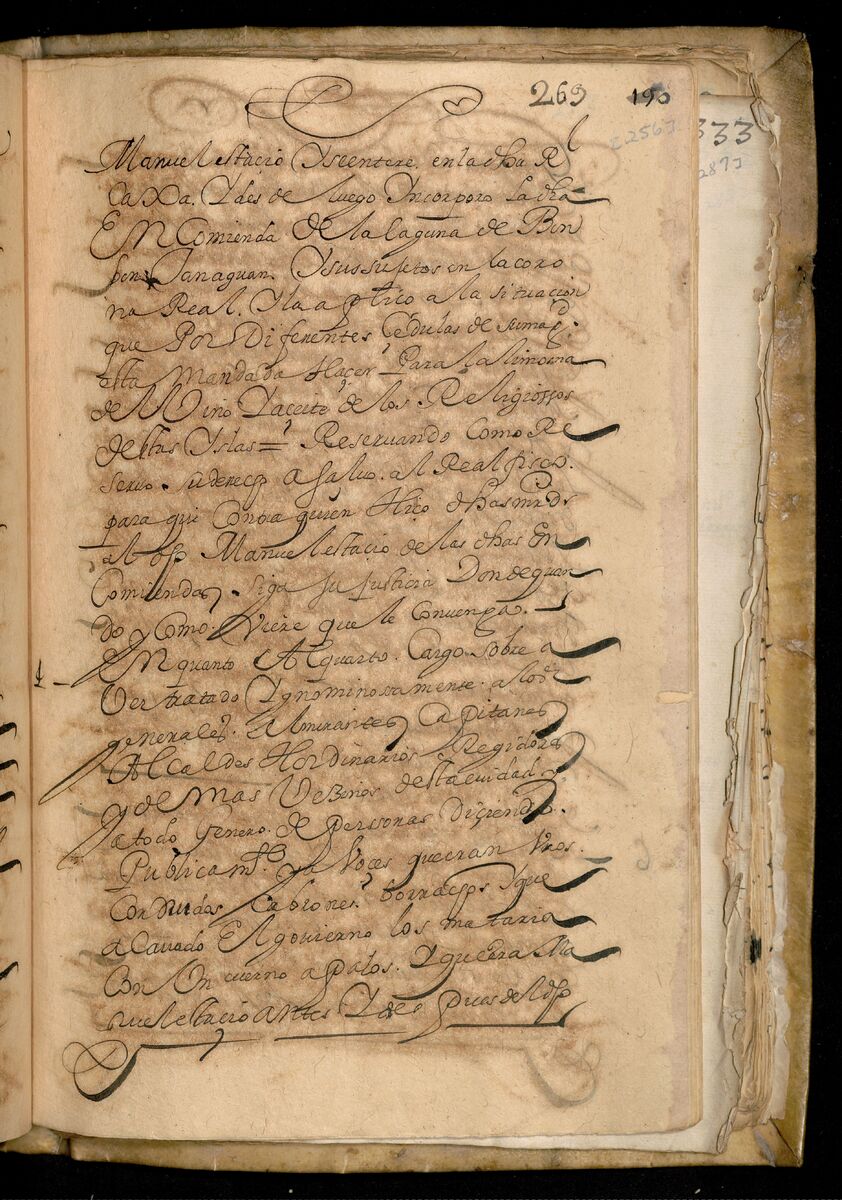 269 190
E2567
333
2873
Manuel estacio Yseentere, en la dha Rl
Caxa. Y des de luego Yncorporo la dha
En Comienda de la laguna de Bon
bon, Tanaguan. Ysus sujetos en la coro
na Real. Y la aplico a la situacion
que Por Diferentes Cedulas de sumagd.
esta Mandada Hacer Para la limosna
de Vino Yaceite de los Religiossos
destas Yslas = Reservando como Re
servo. su derecho a salvo. al Real fisco.
para qui Contra quien Hiço dhas mrds
al dho Manuel estacio de las dhas En
Comiendas. siga su justicia Donde quan
do y Como. Viere que le Convenga.
En quanto Al quarto. Cargo. sobre a
Ver tratado Ygnominossamente. a los
generales. Almirantes Capitanes
Alcaldes Hordinarios Regidores
y de mas Vesinos desta ciudad y
a todo genero. de personas Diçiendo.
Publicamte. ya Voces que eran Unos.
Cornudos Cabrones. borrachos Yque
acavado El govierno los mataria
Con Un cuerno a palos. Y que era Ma
nuel estacio antes Y des pues del dho